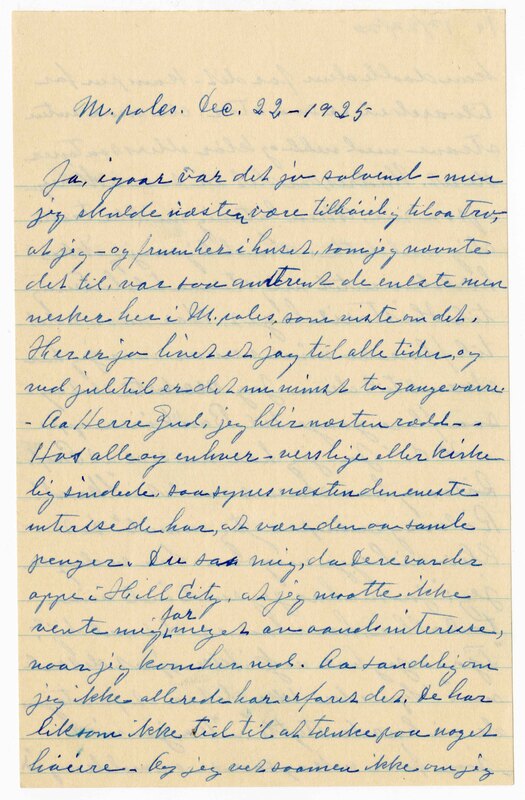 M.poles. Dec. 22 - 1925
Ja, igaar var det jo solvend - men
jeg skulde næsten være tilbøielig til aa tro,
at jeg - og fruen her i huset, som jeg nævnte
det til, var saa omtrent de eneste men
nesker her i M.poles, som viste om det.
Her er jo livet et jag til alle tider, og
ved juletil er det nu minst to gange værre.
- Aa Herre Gud, jeg blir næsten rædd - -
Hos alle og enhver - verslige eller kirke
lig sindede, saa synes næsten den eneste
interesse de har, at være den aa samle
penger. Du sa mig, da Dere var der
oppe i Hill City, at jeg maatte ikke
vente mig for meget av aandsinteresse,
naar jeg kom her ned. Aa sandelig om
jeg ikke allerede har erfaret det. De har
liksom ikke tid til at tænke paa noget
høiere - Og jeg vet saamen ikke om jeg